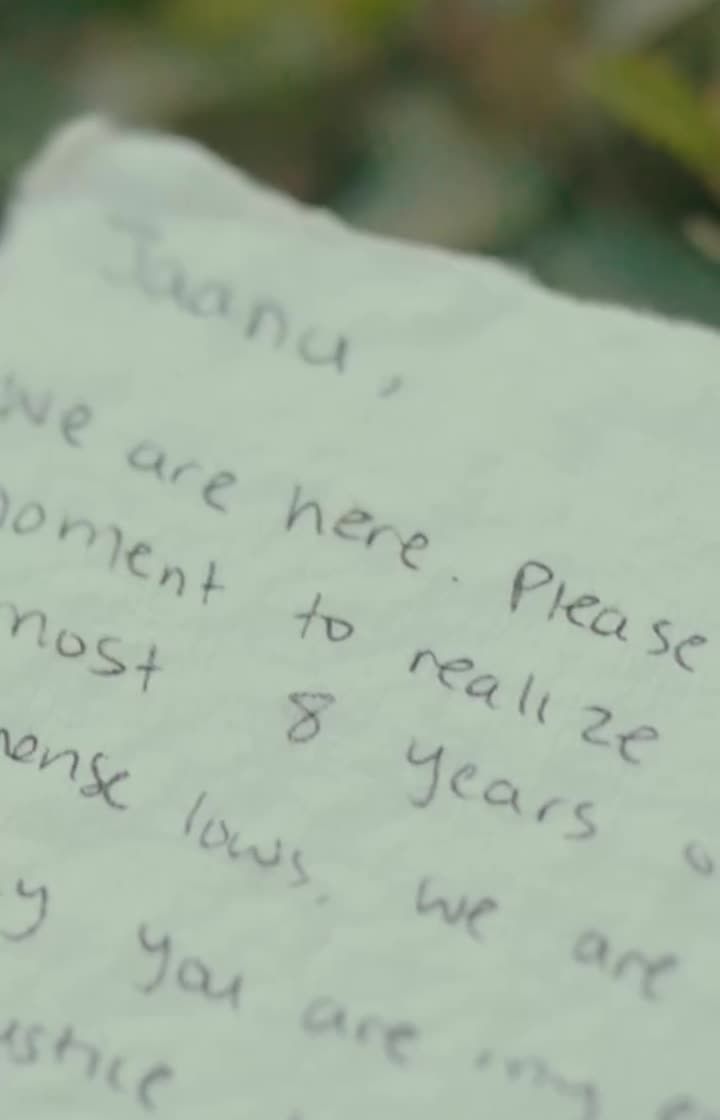 Jaanu,
we are here. Please
moment to realize
most 8 years
mense lows, we are
y you are my
ustice